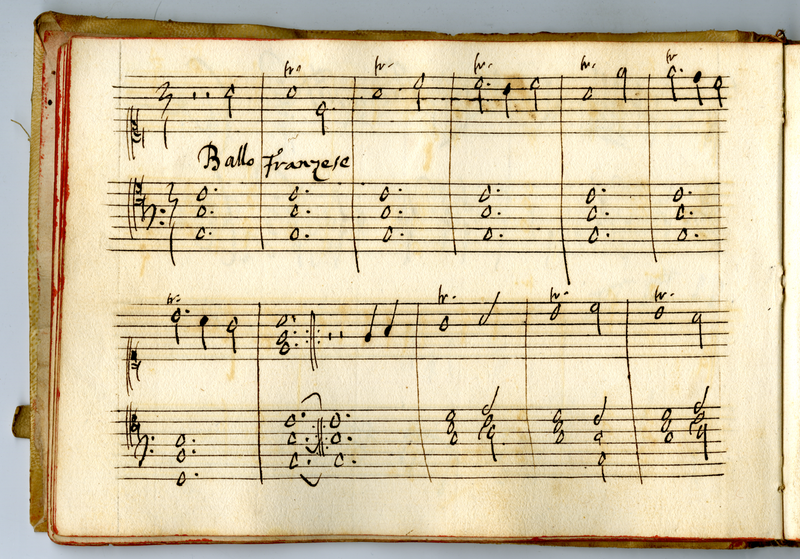 tr. tr. tr. tr. tr
Ballo Franzese
tr.
tr. tr. tr.